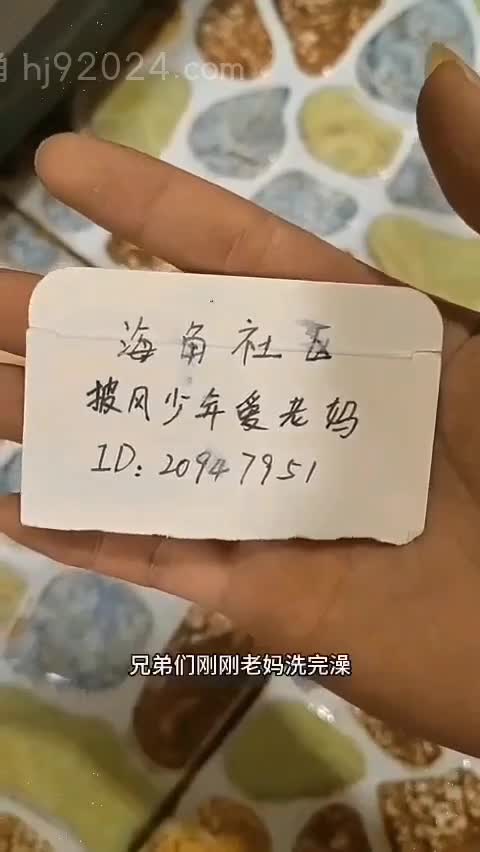 角 hj92024.com
海角社区
披风少年爱老妈
ID: 20947951
兄弟们刚刚老妈洗完澡